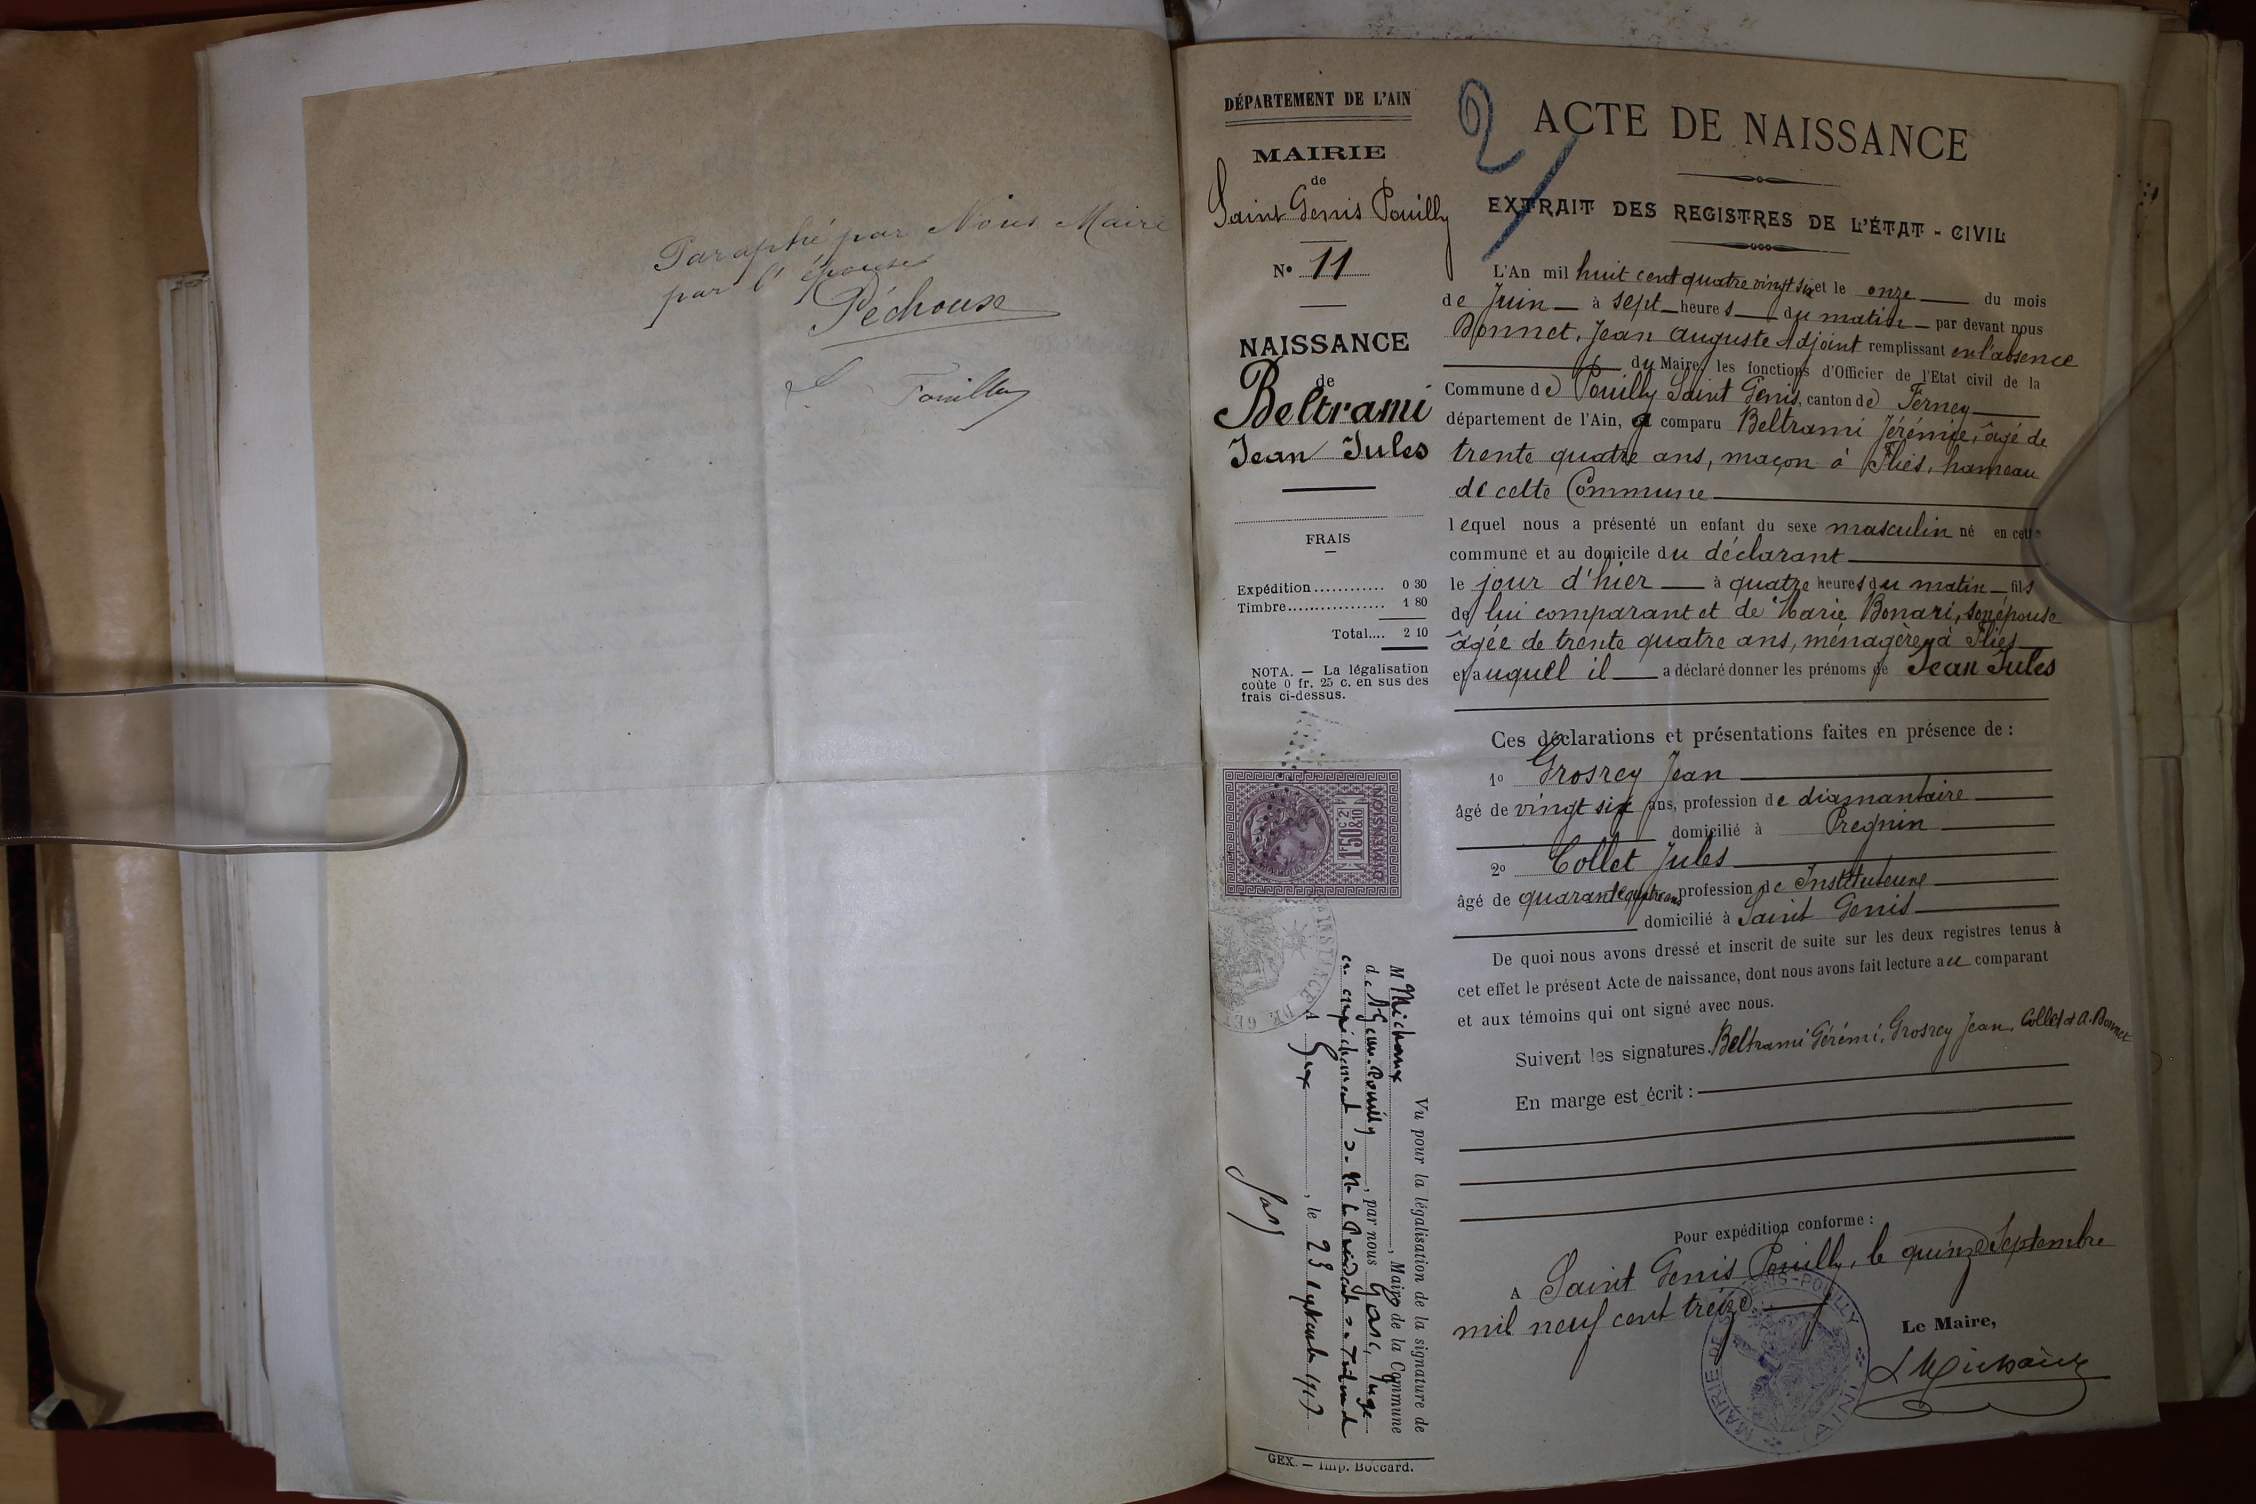 Paraphé par Nous Maire
par l'épouse
Péchoux
DÉPARTEMENT DE L'AIN
MAIRIE
de
Saint Genis Pouilly
N° 11
NAISSANCE
de
Beltrami
Jean Jules
FRAIS
Expédition............ 0 30
Timbre................. 1 80
Total.... 2 10
NOTA. — La légalisation
coûte 0 fr. 25 c. en sus des
frais ci-dessus.
DIMENSION
Vu pour la légalisation de la signature de
M Michaux, Maire de la Commune
de St Genis-Pouilly, par nous Gasc, Juge
en empêchement de Mr le Président du Tribunal
A Gex, le 23 septembre 1913
GEX. — Imp. Boccard.
2
ACTE DE NAISSANCE
EXTRAIT DES REGISTRES DE L'ÉTAT - CIVIL
L'An mil huit cent quatre vingt six et le onze du mois
de Juin à sept heures du matin par devant nous
Bonnet, Jean Auguste Adjoint remplissant en l'absence
du Maire, les fonctions d'Officier de l'Etat civil de la
Commune de Pouilly Saint Genis, canton de Ferney
département de l'Ain, a comparu Beltrami Jérémie, âgé de
trente quatre ans, maçon à Flies, hameau
de cette Commune
lequel nous a présenté un enfant du sexe masculin né en cette
commune et au domicile du déclarant
le jour d'hier à quatre heures du matin fils
de lui comparant et de Marie Bonari, son épouse
âgée de trente quatre ans, ménagère à Flies
et auquel il a déclaré donner les prénoms de Jean Jules
Ces déclarations et présentations faites en présence de :
1° Grosrey Jean
âgé de vingt six ans, profession de diamantaire
domicilié à Pregnin
2° Collet Jules
âgé de quarante quatre ans profession de Instituteur
domicilié à Saint Genis
De quoi nous avons dressé et inscrit de suite sur les deux registres tenus à
cet effet le présent Acte de naissance, dont nous avons fait lecture au comparant
et aux témoins qui ont signé avec nous.
Suivent les signatures. Beltrami Gérémi, Grosrey Jean, Collet et A. Bonnet
En marge est écrit :
Pour expédition conforme :
A Saint Genis Pouilly, le quinze Septembre
mil neuf cent treize
Le Maire,
L Michaux
MAIRIE DE ST GENIS-POUILLY (AIN)